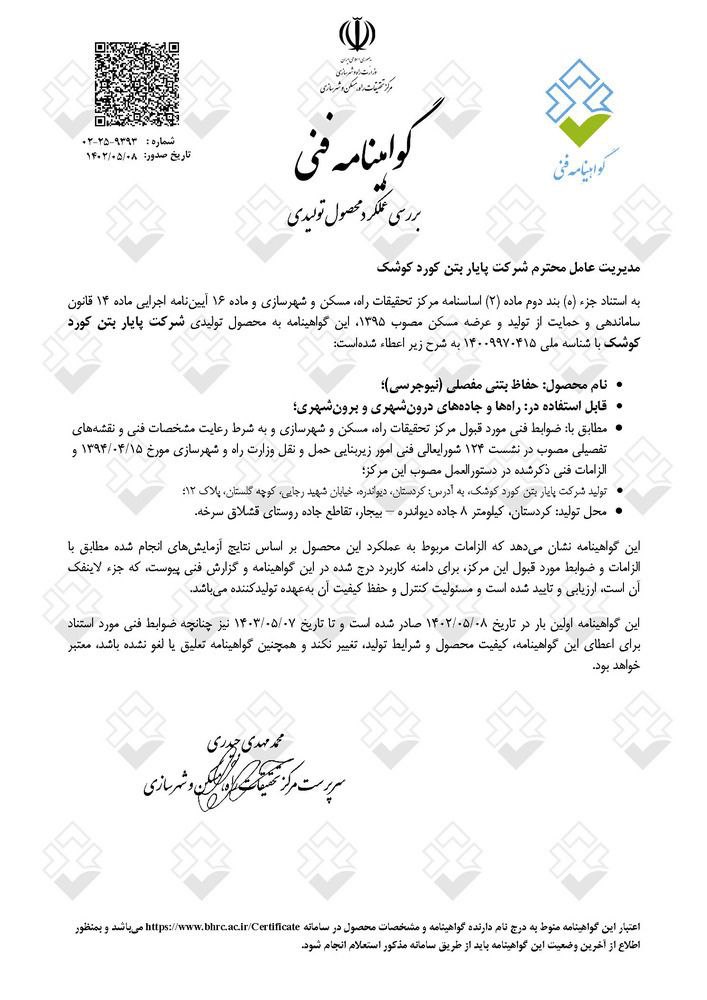 جمهوری اسلامی ایران
وزارت راه و شهرسازی
مرکز تحقیقات راه، مسکن و شهرسازی
گواهینامه فنی
شماره : ۹۳۹۳-۲۵-۰۲
تاریخ صدور: ۱۴۰۲/۰۵/۰۸
گواهینامه فنی
بررسی عملکرد محصول تولیدی
مدیریت عامل محترم شرکت پایار بتن کورد کوشک
به استناد جزء (ه) بند دوم ماده (۲) اساسنامه مرکز تحقیقات راه، مسکن و شهرسازی و ماده ۱۶ آیین‌نامه اجرایی ماده ۱۴ قانون
ساماندهی و حمایت از تولید و عرضه مسکن مصوب ۱۳۹۵، این گواهینامه به محصول تولیدی شرکت پایار بتن کورد
کوشک با شناسه ملی ۱۴۰۰۹۹۷۰۴۱۵ به شرح زیر اعطاء شده‌است:
• نام محصول: حفاظ بتنی مفصلی (نیوجرسی)؛
• قابل استفاده در: راه‌ها و جاده‌های درون‌شهری و برون‌شهری؛
• مطابق با: ضوابط فنی مورد قبول مرکز تحقیقات راه، مسکن و شهرسازی و به شرط رعایت مشخصات فنی و نقشه‌های
تفصیلی مصوب در نشست ۱۲۴ شورایعالی فنی امور زیربنایی حمل و نقل وزارت راه و شهرسازی مورخ ۱۳۹۴/۰۴/۱۵ و
الزامات فنی ذکرشده در دستورالعمل مصوب این مرکز؛
• تولید شرکت پایار بتن کورد کوشک، به آدرس: کردستان، دیواندره، خیابان شهید رجایی، کوچه گلستان، پلاک ۱۲؛
• محل تولید: کردستان، کیلومتر ۸ جاده دیواندره – بیجار، تقاطع جاده روستای قشلاق سرخه.
این گواهینامه نشان می‌دهد که الزامات مربوط به عملکرد این محصول بر اساس نتایج آزمایش‌های انجام شده مطابق با
الزامات و ضوابط مورد قبول این مرکز، برای دامنه کاربرد درج شده در این گواهینامه و گزارش فنی پیوست، که جزء لاینفک
آن است، ارزیابی و تایید شده است و مسئولیت کنترل و حفظ کیفیت آن به‌عهده تولیدکننده می‌باشد.
این گواهینامه اولین بار در تاریخ ۱۴۰۲/۰۵/۰۸ صادر شده است و تا تاریخ ۱۴۰۳/۰۵/۰۷ نیز چنانچه ضوابط فنی مورد استناد
برای اعطای این گواهینامه، کیفیت محصول و شرایط تولید، تغییر نکند و همچنین گواهینامه تعلیق یا لغو نشده باشد، معتبر
خواهد بود.
محمد مهدی حیدری
سرپرست مرکز تحقیقات راه، مسکن و شهرسازی
اعتبار این گواهینامه منوط به درج نام دارنده گواهینامه و مشخصات محصول در سامانه https://www.bhrc.ac.ir/Certificate می‌باشد و بمنظور
اطلاع از آخرین وضعیت این گواهینامه باید از طریق سامانه مذکور استعلام انجام شود.